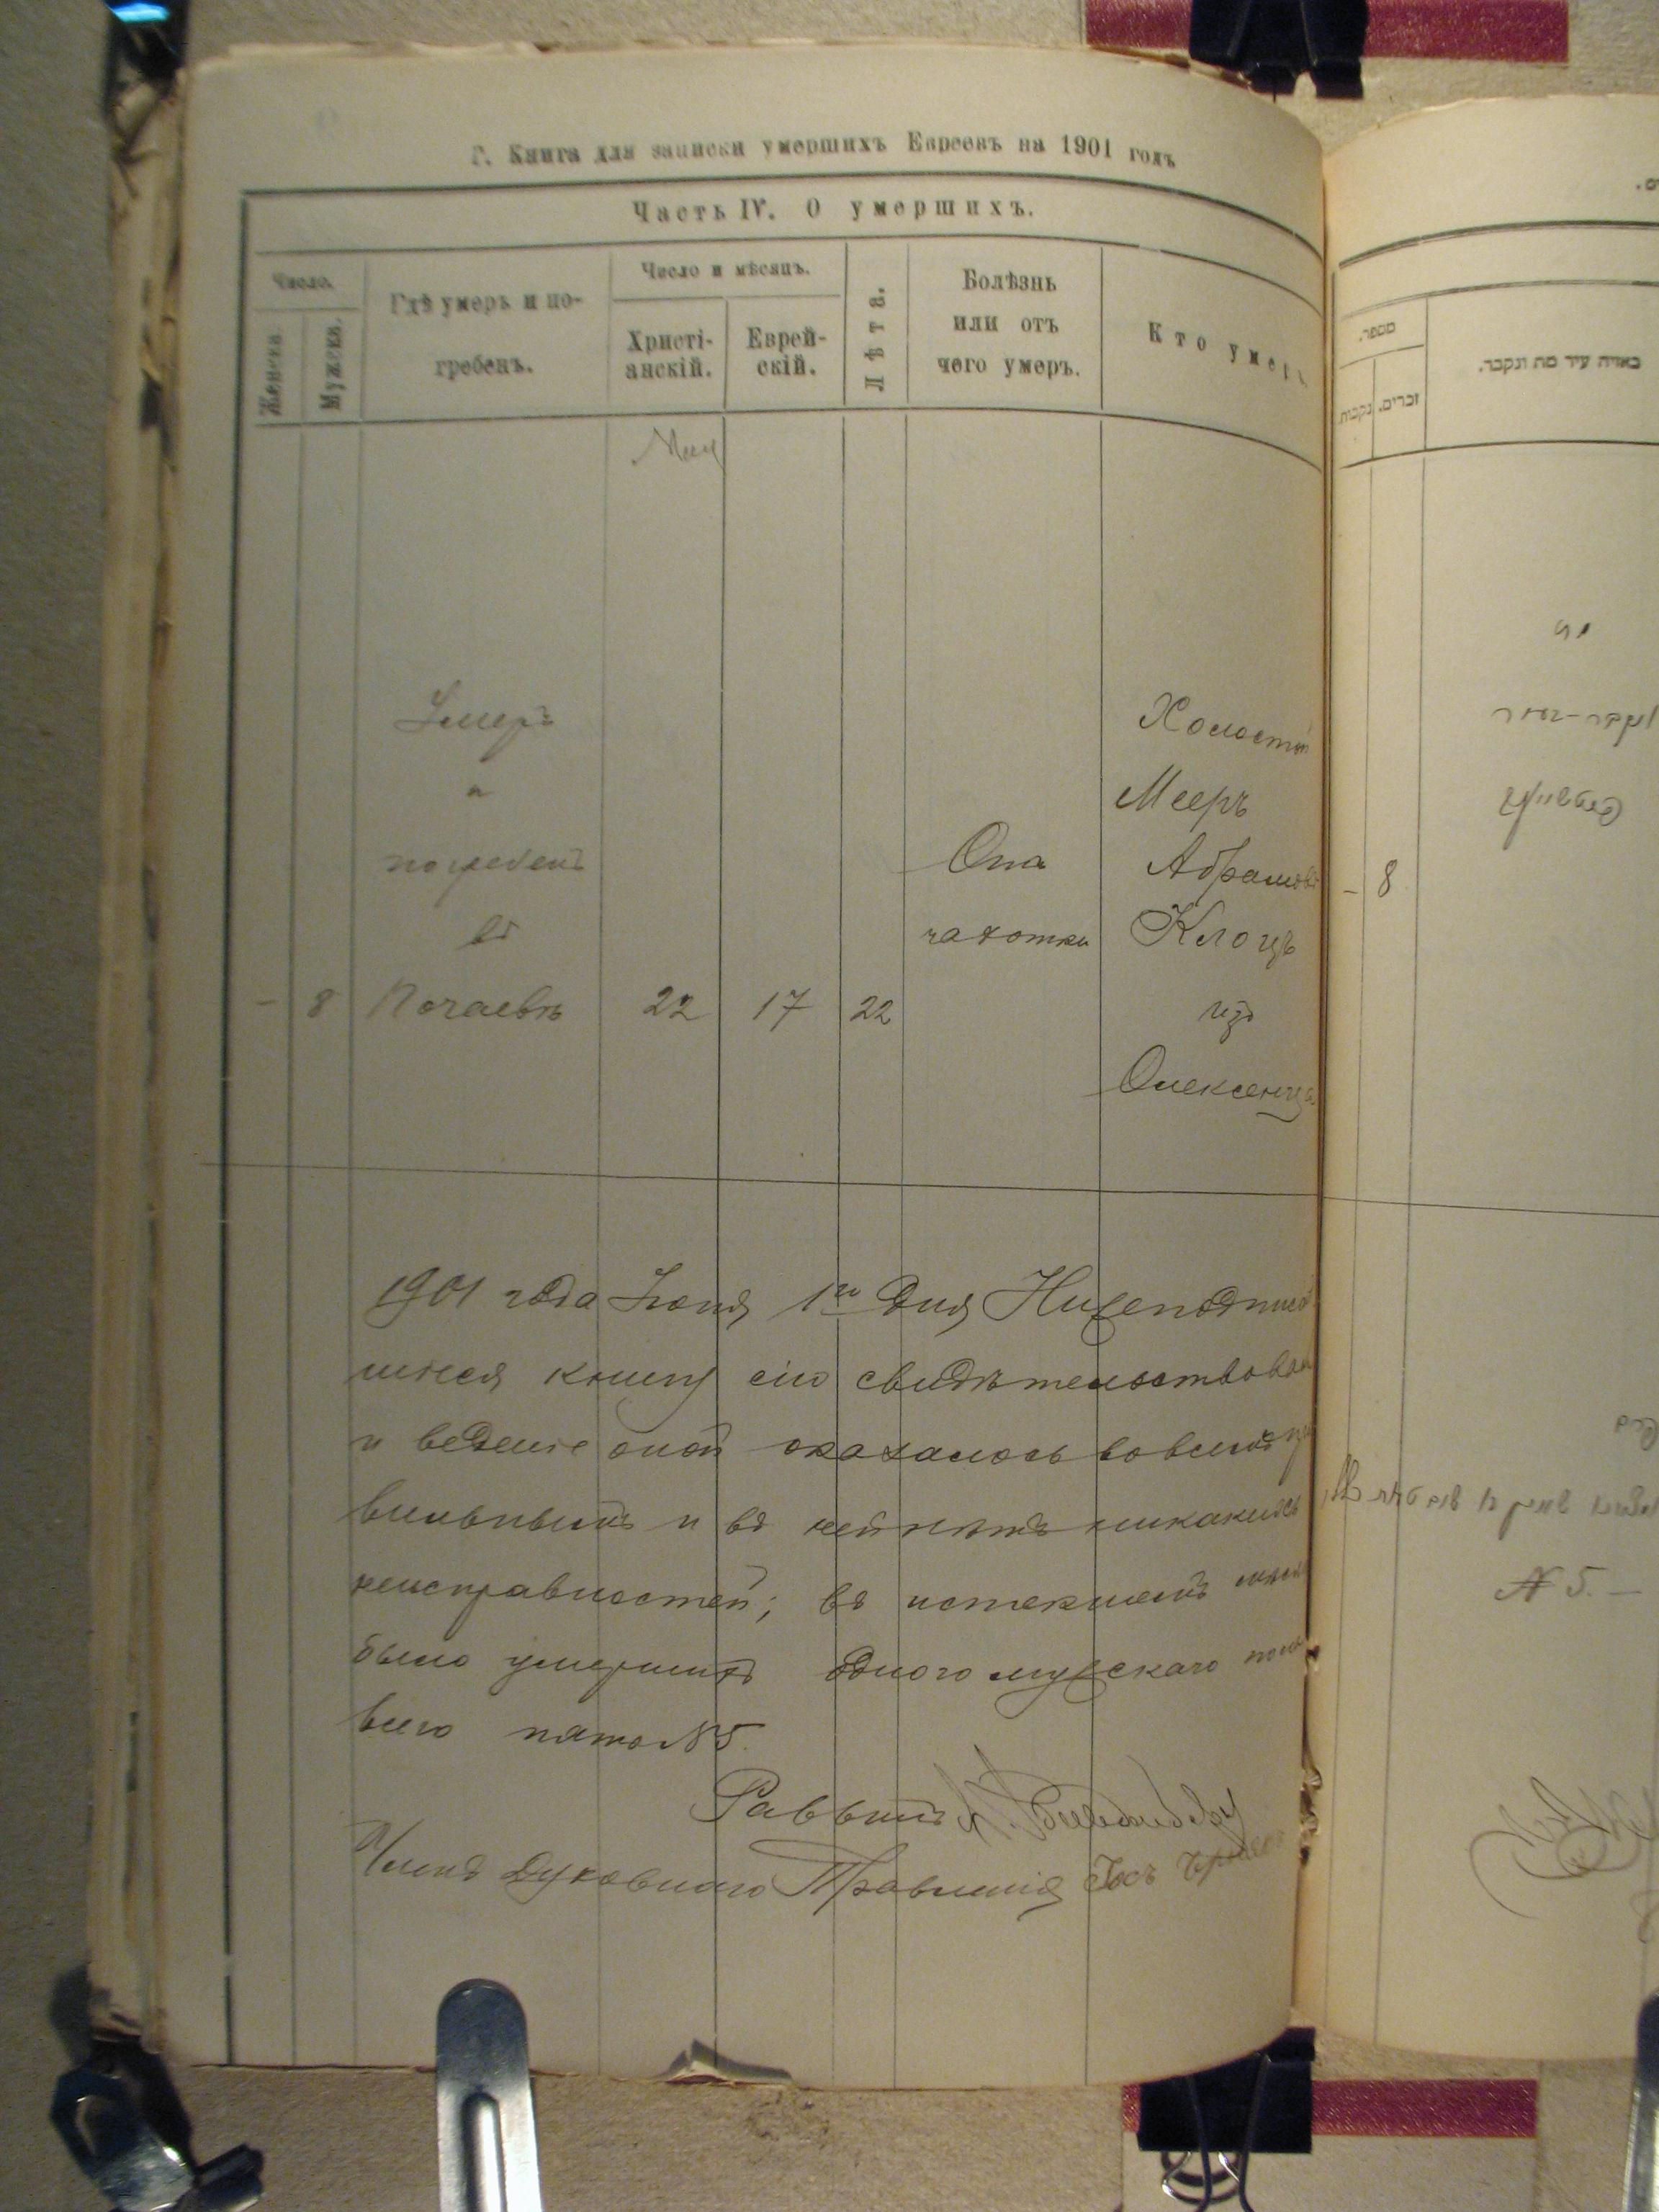 Г. Книга для записки умершихъ Евреевъ на 1901 годъ
Часть IV. О умершихъ.
Число.
Женска.
Мужеска.
Гдѣ умеръ и по-
гребенъ.
Число и мѣсяцъ.
Христі-
анскій.
Еврей-
скій.
Лѣта.
Болѣзнь
или отъ
чего умеръ.
Кто умеръ
Май
Умеръ
и
погребенъ
въ
Почаевѣ
- 8
22
17
22
Отъ
чахотки
Холостой
Мееръ
Абрамовъ
Клоцъ
изъ
Олексинца
1901 года Іюня 1го дня Нижеподписав
шіеся книгу сію свидѣтельствовали
и веденіе оной оказалось во всемъ пра
вильнымъ и въ ней нѣтъ никакихъ
неисправностей; въ истекшемъ мѣсяцѣ
было умершихъ одного мужскаго пола
всего пять №5.
Раввинъ
Членъ Духовнаго Правленія
מספר.
זכרים.
נקבות
באיזה עיר מת ונקבר.
- 8
№ 5. —